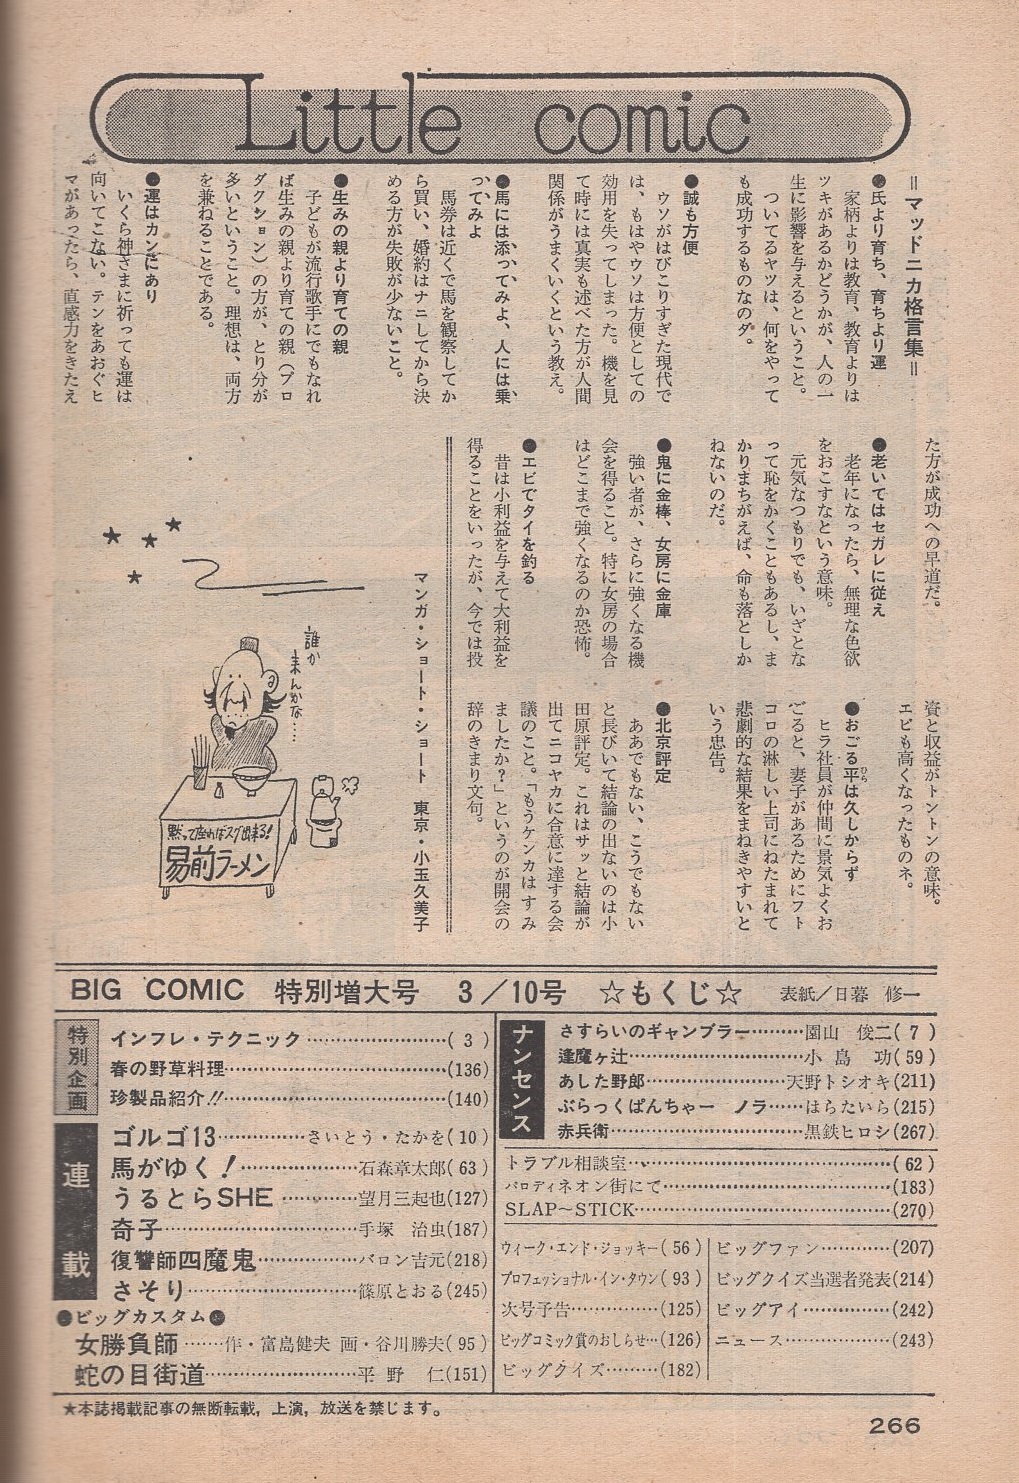 Little comic
＝マッドニカ格言集＝
●氏より育ち、育ちより運
家柄よりは教育、教育よりは
ツキがあるかどうかが、人の一
生に影響を与えるということ。
ついてるヤツは、何をやって
も成功するものなのダ。
●誠も方便
ウソがはびこりすぎた現代で
は、もはやウソは方便としての
効用を失ってしまった。機を見
て時には真実も述べた方が人間
関係がうまくいくという教え。
●馬には添ってみよ、人には乗
ってみよ
馬券は近くで馬を観察してか
ら買い、婚約はナニしてから決
める方が失敗が少ないこと。
●生みの親より育ての親
子どもが流行歌手にでもなれ
ば生みの親より育ての親（プロ
ダクション）の方が、とり分が
多いということ。理想は、両方
を兼ねることである。
●運はカンにあり
いくら神さまに祈っても運は
向いてこない。テンをあおぐヒ
マがあったら、直感力をきたえ
た方が成功への早道だ。
●老いてはセガレに従え
老年になったら、無理な色欲
をおこすなという意味。
元気なつもりでも、いざとな
って恥をかくこともあるし、ま
かりまちがえば、命も落としか
ねないのだ。
●鬼に金棒、女房に金庫
強い者が、さらに強くなる機
会を得ること。特に女房の場合
はどこまで強くなるのか恐怖。
●エビでタイを釣る
昔は小利益を与えて大利益を
得ることをいったが、今では投
資と収益がトントンの意味。
エビも高くなったものネ。
●おごる平は久しからず
ひら
ヒラ社員が仲間に景気よくお
ごると、妻子があるためにフト
コロの淋しい上司にねたまれて
悲劇的な結果をまねきやすいと
いう忠告。
●北京評定
ああでもない、こうでもない
と長びいて結論の出ないのは小
田原評定。これはサッと結論が
出てニコヤカに合意に達する会
議のこと。「もうケンカはすみ
ましたか？」というのが開会の
辞のきまり文句。
マンガ・ショート・ショート　東京・小玉久美子
誰か
来んかな…
黙って座ればスグ出来る！
易前ラーメン
BIG COMIC 特別増大号 3／10号 ☆もくじ☆ 表紙／日暮 修一
特別企画
インフレ・テクニック……………………( 3 )
春の野草料理……………………(136)
珍製品紹介!!……………………(140)
連載
ゴルゴ13……………さいとう・たかを( 10 )
馬がゆく！……………石森章太郎( 63 )
うるとらSHE……………望月三起也(127)
奇子……………………手塚 治虫(187)
復讐師四魔鬼……………バロン吉元(218)
さそり……………………篠原とおる(245)
●ビッグカスタム●
女勝負師……作・富島健夫 画・谷川勝夫( 95 )
蛇の目街道……………………平野 仁(151)
ナンセンス
さすらいのギャンブラー………園山 俊二( 7 )
逢魔ヶ辻……………………小島 功( 59 )
あした野郎……………………天野トシオキ(211)
ぶらっくぱんちゃー ノラ……はらたいら(215)
赤兵衛……………………黒鉄ヒロシ(267)
トラブル相談室……………………( 62 )
パロディネオン街にて……………………(183)
SLAP～STICK……………………(270)
ウィーク・エンド・ジョッキー( 56 )
プロフェッショナル・イン・タウン( 93 )
次号予告……………(125)
ビッグコミック賞のおしらせ…(126)
ビッグクイズ………(182)
ビッグファン…………(207)
ビッグクイズ当選者発表(214)
ビッグアイ…………(242)
ニュース……………(243)
★本誌掲載記事の無断転載，上演，放送を禁じます。
266